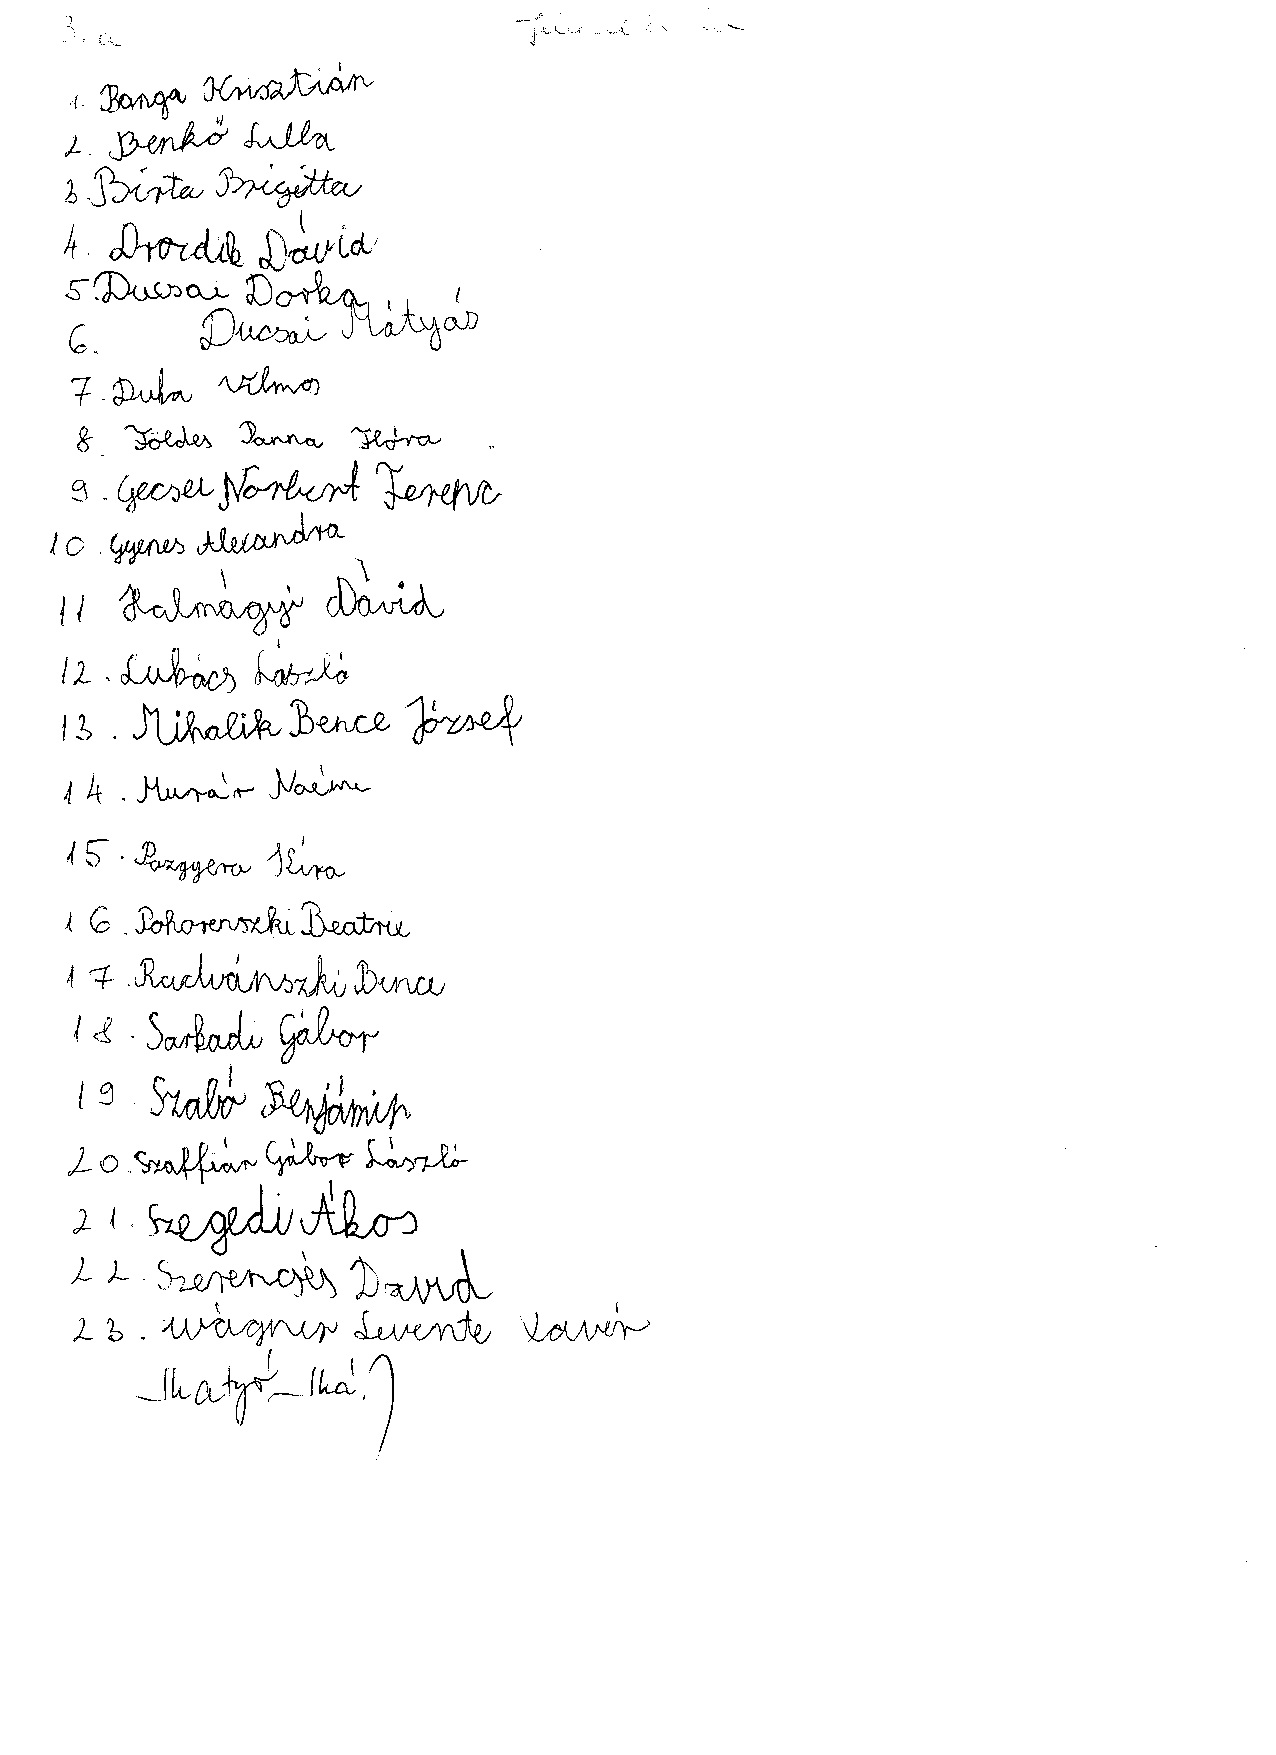 3. a
1. Banga Krisztián
2. Benkő Lilla
3. Birta Brigitta
4. Drozdik Dávid
5. Ducsai Dorka
6. Ducsai Mátyás
7. Duba Vilmos
8. Földes Panna Flóra
9. Gecsei Norbert Ferenc
10. Gyenes Alexandra
11 Halmágyi Dávid
12. Lukács László
13. Mihalik Bence József
14. Murár Noémi
15. Pazggera Kíra
16. Pohorenszki Beatrix
17. Radvánszki Bence
18. Sarkadi Gábor
19. Szabó Benjámin
20. Szaffián Gábor László
21. Szegedi Ákos
22. Szerencsés Dávid
23. Wágner Levente Xavér